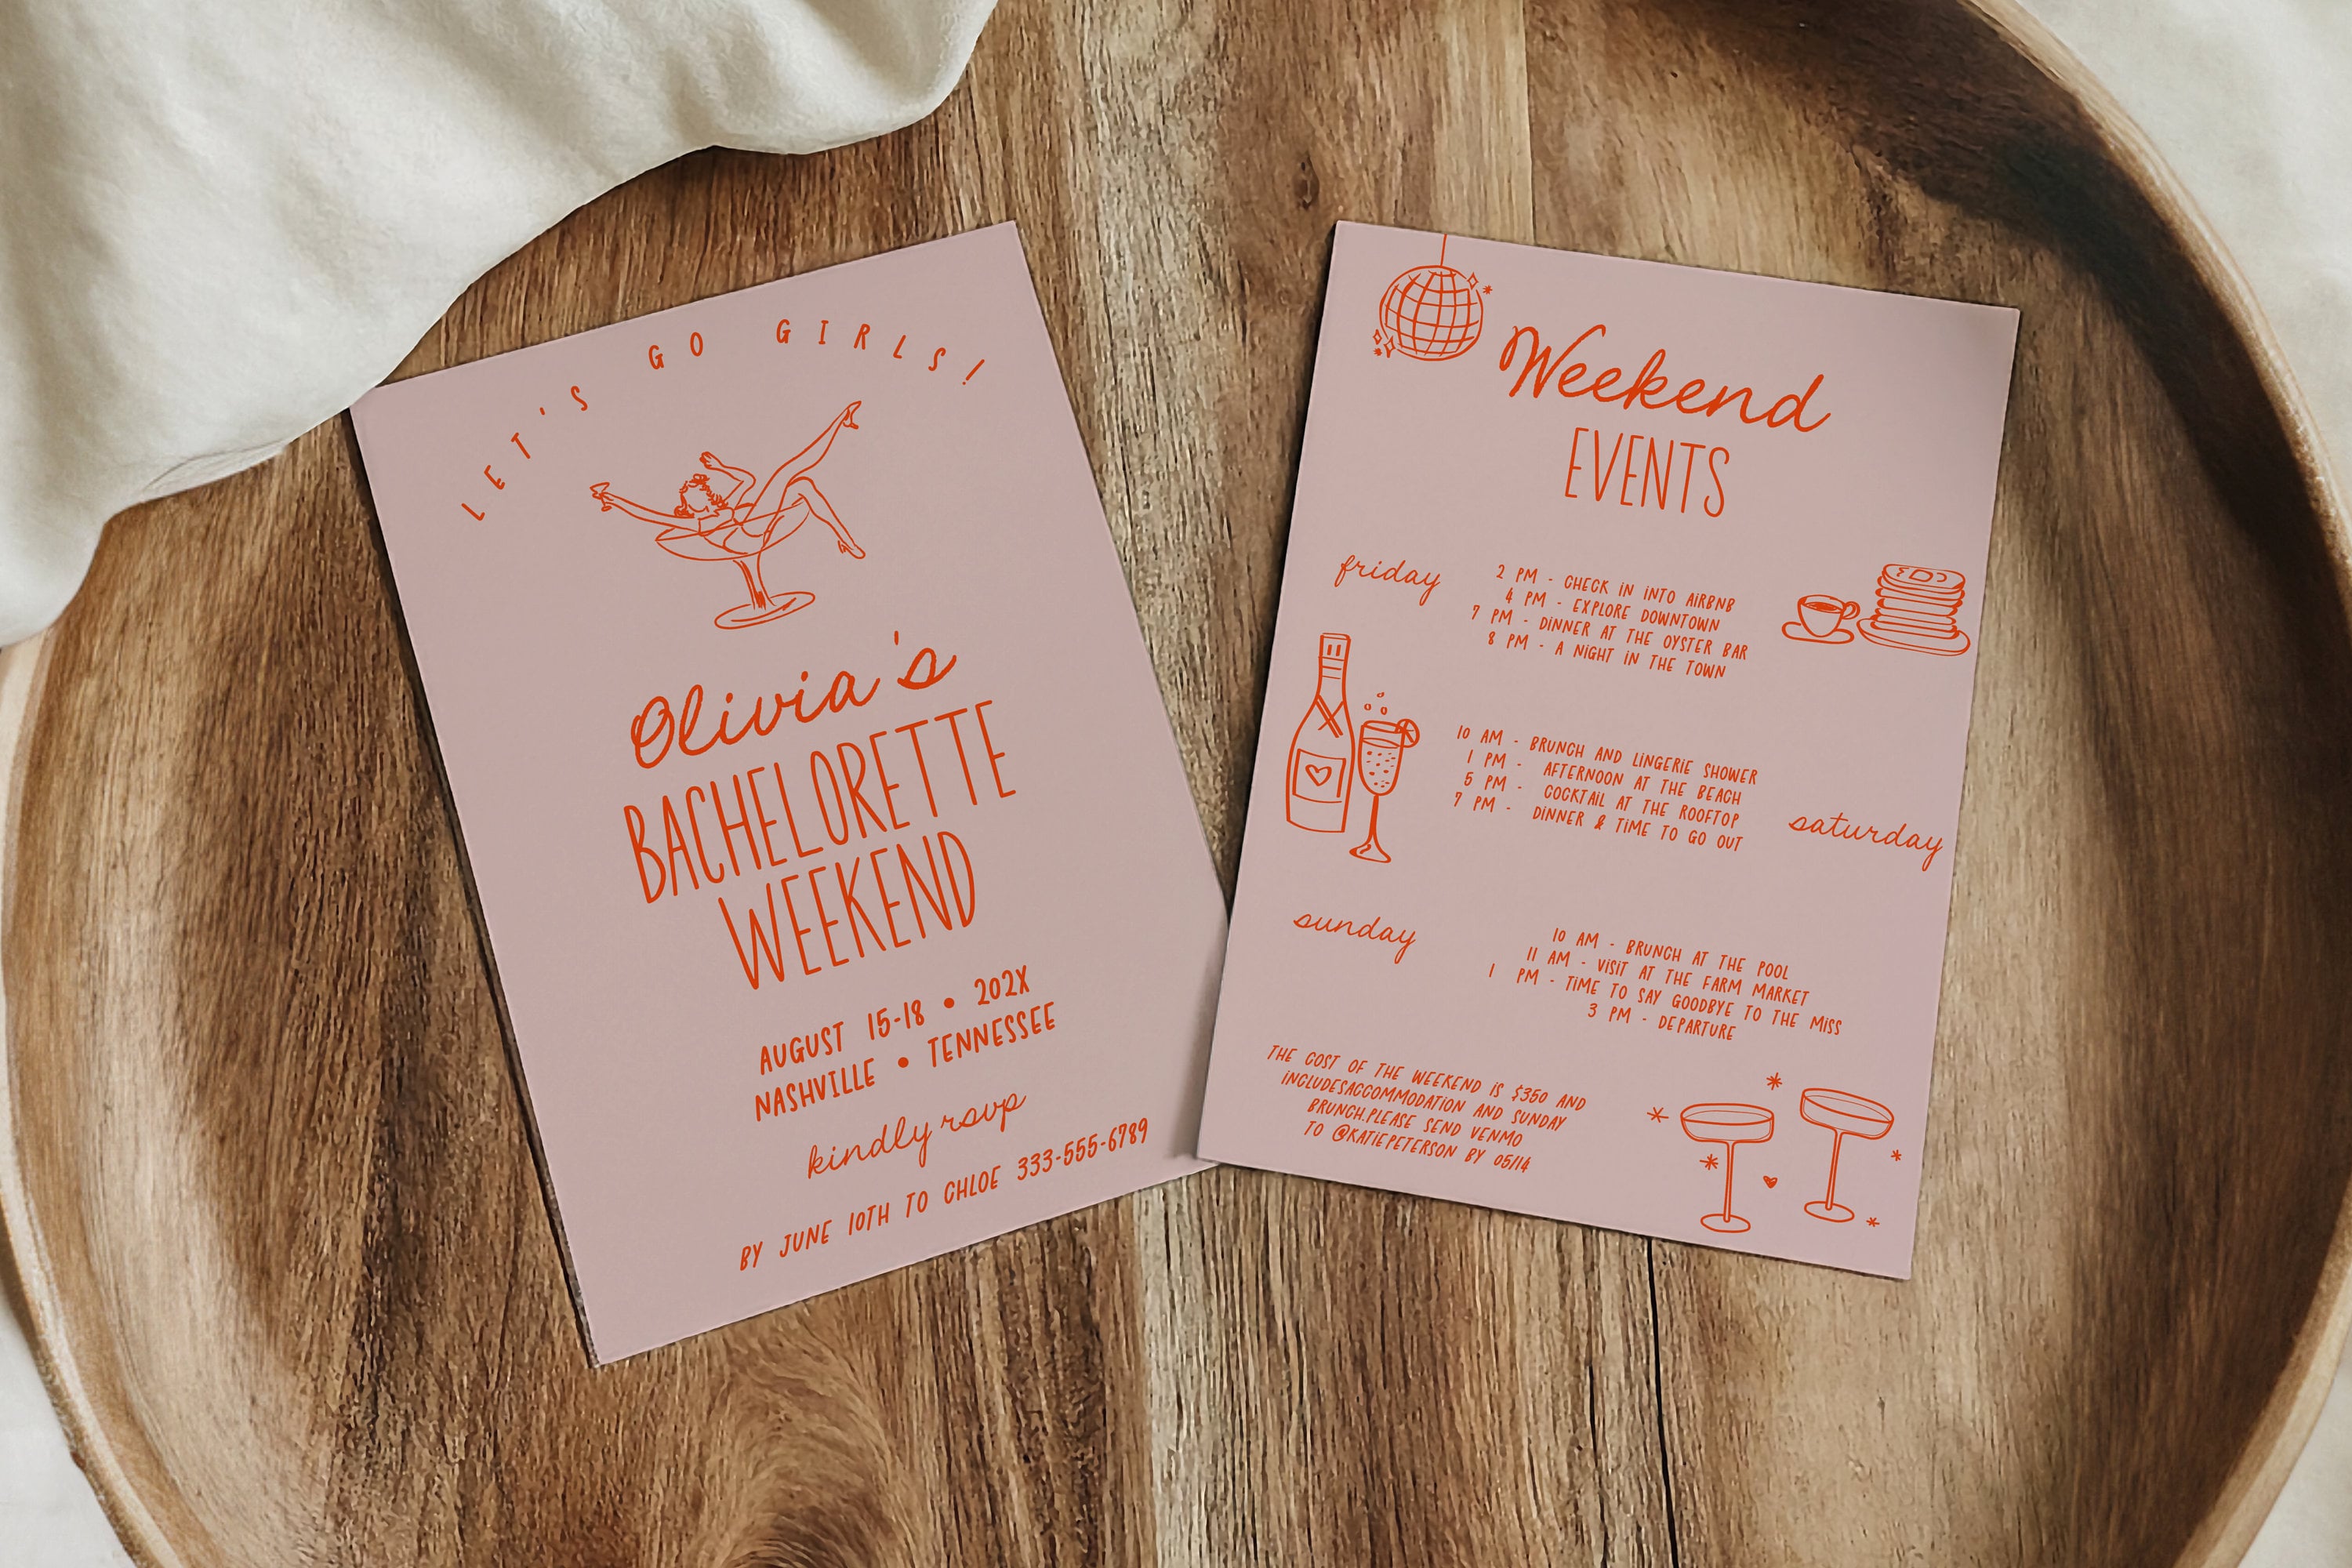 LET'S GO GIRLS!
Olivia's
BACHELORETTE
WEEKEND
AUGUST 15-18 • 202X
NASHVILLE • TENNESSEE
kindly rsvp
BY JUNE 10TH TO CHLOE 333-555-6789
Weekend
EVENTS
friday
2 PM - CHECK IN INTO AIRBNB
4 PM - EXPLORE DOWNTOWN
7 PM - DINNER AT THE OYSTER BAR
8 PM - A NIGHT IN THE TOWN
10 AM - BRUNCH AND LINGERIE SHOWER
1 PM - AFTERNOON AT THE BEACH
5 PM - COCKTAIL AT THE ROOFTOP
7 PM - DINNER & TIME TO GO OUT
saturday
sunday
10 AM - BRUNCH AT THE POOL
11 AM - VISIT AT THE FARM MARKET
1 PM - TIME TO SAY GOODBYE TO THE MISS
3 PM - DEPARTURE
THE COST OF THE WEEKEND IS $350 AND
INCLUDESACCOMMODATION AND SUNDAY
BRUNCH.PLEASE SEND VENMO
TO @KATIEPETERSON BY 05/14